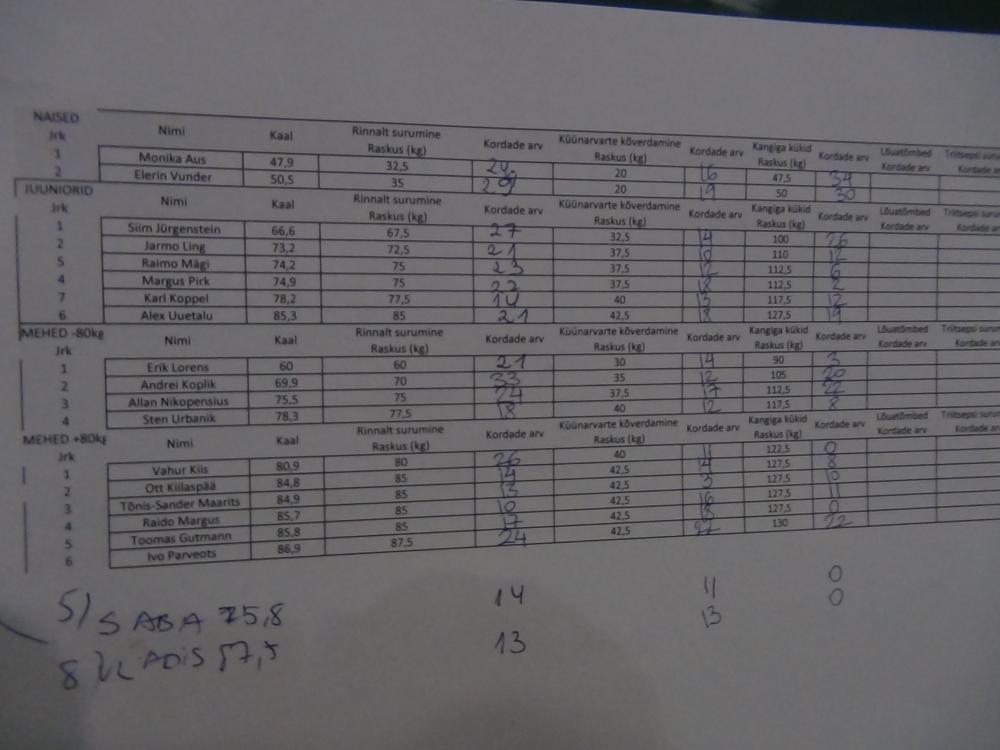 NAISED
Jrk Nimi Kaal Rinnalt surumine Raskus (kg) Kordade arv Küünarvarte kõverdamine Raskus (kg) Kordade arv Kangiga kükid Raskus (kg) Kordade arv Lõuatõmbed Kordade arv Triitsepsi Kordade arv
1 Monika Aus 47,9 32,5 20 16 47,5 34
2 Elerin Vunder 50,5 35 29 20 19 50 30
JUUNIORID
Jrk Nimi Kaal Rinnalt surumine Raskus (kg) Kordade arv Küünarvarte kõverdamine Raskus (kg) Kordade arv Kangiga kükid Raskus (kg) Kordade arv Lõuatõmbed Kordade arv Triitsepsi Kordade arv
1 Siim Jürgenstein 66,6 67,5 27 32,5 14 100 26
2 Jarmo Ling 73,2 72,5 21 37,5 10 110 12
5 Raimo Mägi 74,2 75 23 37,5 12 112,5 6
4 Margus Pirk 74,9 75 22 37,5 18 112,5 2
7 Karl Koppel 78,2 77,5 14 40 13 117,5 12
6 Alex Uuetalu 85,3 85 21 42,5 18 127,5 19
MEHED -80kg
Jrk Nimi Kaal Rinnalt surumine Raskus (kg) Kordade arv Küünarvarte kõverdamine Raskus (kg) Kordade arv Kangiga kükid Raskus (kg) Kordade arv Lõuatõmbed Kordade arv Triitsepsi Kordade arv
1 Erik Lorens 60 60 21 30 14 90 3
2 Andrei Koplik 69,9 70 33 35 12 105 20
3 Allan Nikopensius 75,5 75 24 37,5 17 112,5 22
4 Sten Urbanik 78,3 77,5 18 40 12 117,5 8
MEHED +80kg
Jrk Nimi Kaal Rinnalt surumine Raskus (kg) Kordade arv Küünarvarte kõverdamine Raskus (kg) Kordade arv Kangiga kükid Raskus (kg) Kordade arv Lõuatõmbed Kordade arv Triitsepsi Kordade arv
1 Vahur Kiis 80,9 80 26 40 11 122,5 0
2 Ott Kiilaspää 84,8 85 14 42,5 14 127,5 8
3 Tõnis-Sander Maarits 84,9 85 13 42,5 3 127,5 10
4 Raido Margus 85,7 85 10 42,5 16 127,5 11
5 Toomas Gutmann 85,8 85 17 42,5 18 127,5 0
6 Ivo Parveots 86,9 87,5 24 42,5 22 130 22
5) SABA 75,8 14 11 0
8 VLADIS 57,5 13 13 0